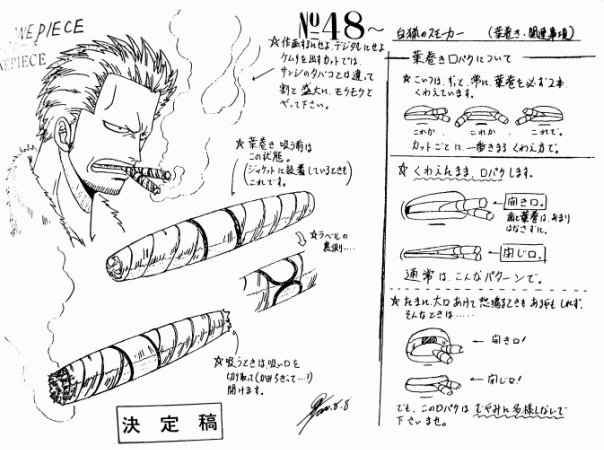 ONE PIECE
ONE PIECE
No 48~
白猟のスモーカー (葉巻き・関連事項)
☆作画するにせよ、デジタルにせよ
ケムリを出すカットでは、
サンジのタバコとは違って
割と盛大に、モクモクと
やって下さい。
☆葉巻き、吸う前は
この状態。
(ジャケットに装着しているときも
これです。)
☆ラベルの
裏側・・・・
☆吸うときは、吸い口を
切り取って(かみちぎって…?)
開けます。
決定稿
葉巻き口パクについて
☆こいつは、ずっと、常に、葉巻を必ず2本、
くわえています。
これか、 これか、 これで。
カットごとに、一番きまるくわえ方で。
☆くわえたまま、口パクします。
←開き口。
歯と葉巻は、あまり
はなさずに。
←閉じ口。
通常は、こんなパターンで。
☆たまに、大口あけて怒鳴るときもあるかもしれず、
そんなときは・・・・・
←開き口!
←閉じ口!
でも、この口パクはむやみに多様しないで
下さいませ。